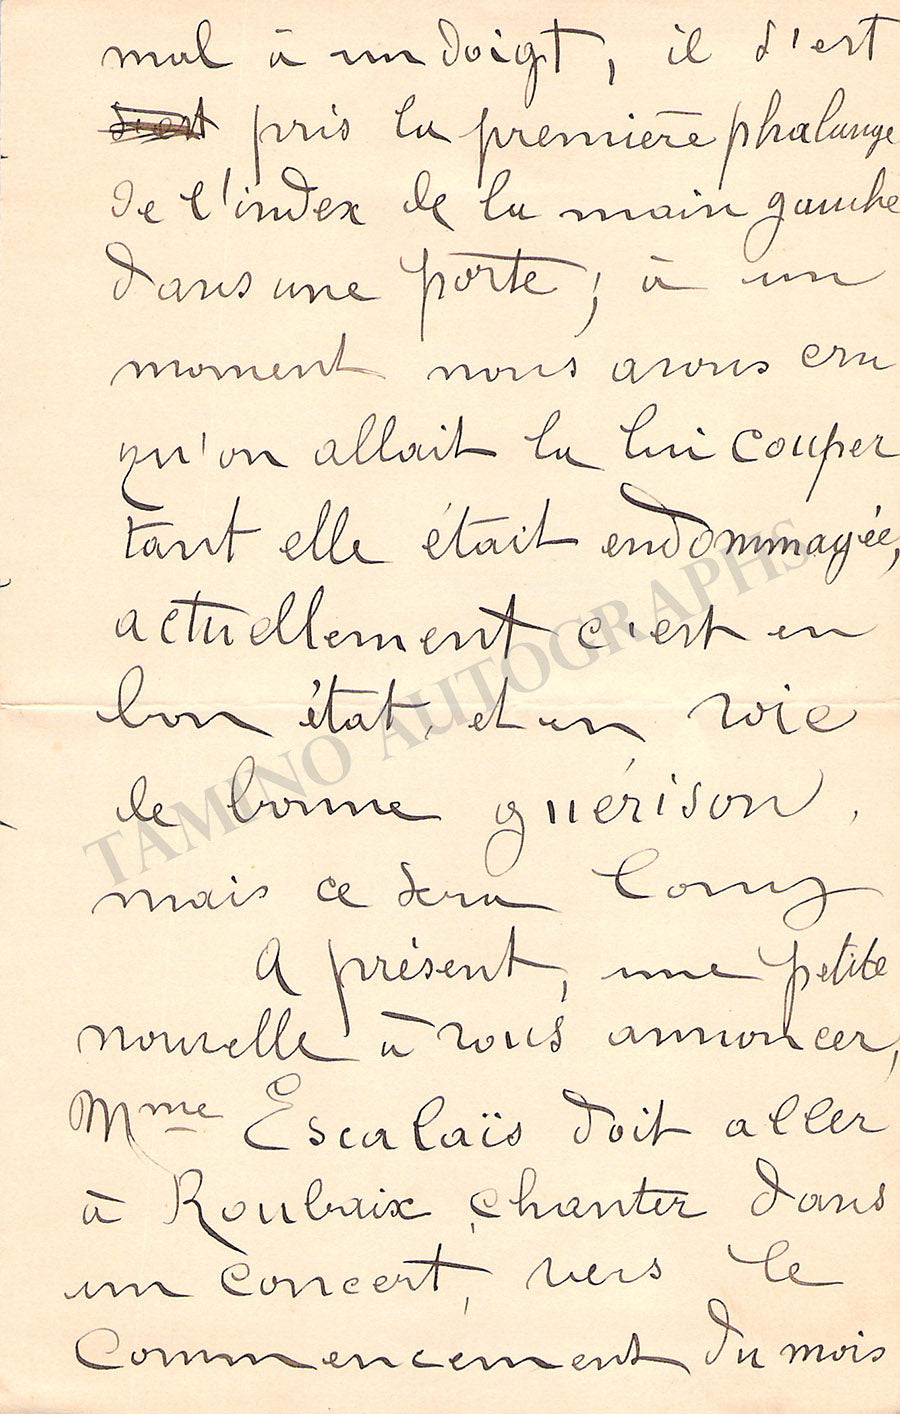 mal à un doigt, il s'est
pris la première phalange
de l'index de la main gauche
dans une porte; à un
moment nous avons cru
qu'on allait la lui couper
tant elle était endommagée,
actuellement c'est en
bon état, et en voie
de bonne guérison,
mais ce sera long
A présent, une petite
nouvelle à vous annoncer,
Mme Escalaïs doit aller
à Roubaix, chanter dans
un concert, vers le
commencement du mois
TAMINO AUTOGRAPHS